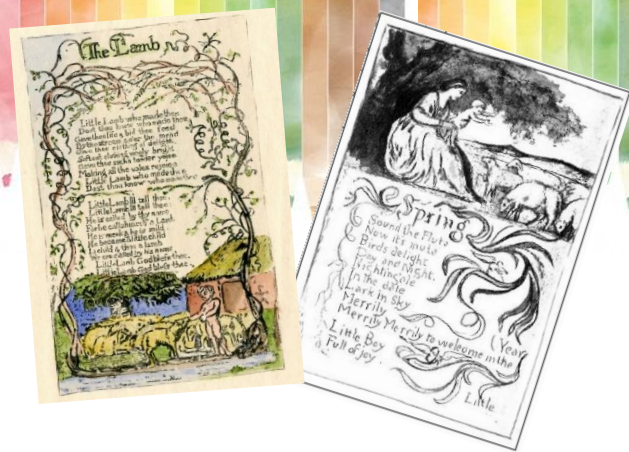 The Lamb
Little Lamb who made thee
Dost thou know who made thee
Gave thee life & bid thee feed
By the stream & o'er the mead
Gave thee clothing of delight,
Softest clothing wooly bright
Gave thee such a tender voice,
Making all the vales rejoice
Little Lamb who made thee
Dost thou know who made thee
Little Lamb I'll tell thee,
Little Lamb I'll tell thee;
He is called by thy name,
For he calls himself a Lamb
He is meek & he is mild,
He became a little child
I a child & thou a lamb
We are called by his name
Little Lamb God bless thee.
Little Lamb God bless thee.
Spring
Sound the Flute
Now it's mute
Birds delight
Day and Night.
Nightingale
In the dale
Lark in Sky
Merrily
Merrily Merrily to welcome in the
Year
Little Boy
Full of joy.
Little